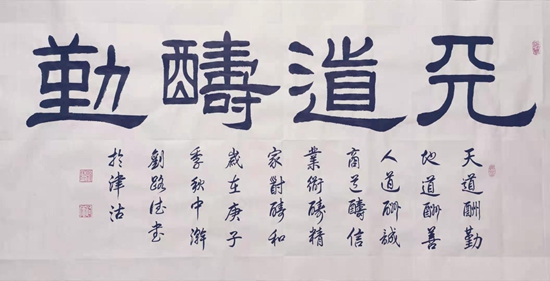 天道醻勤
天道酬勤
地道酬善
人道酬誠
商道醻信
業術醻精
家醻和
歲在庚子
季秋中澣
劉路書
於津沽